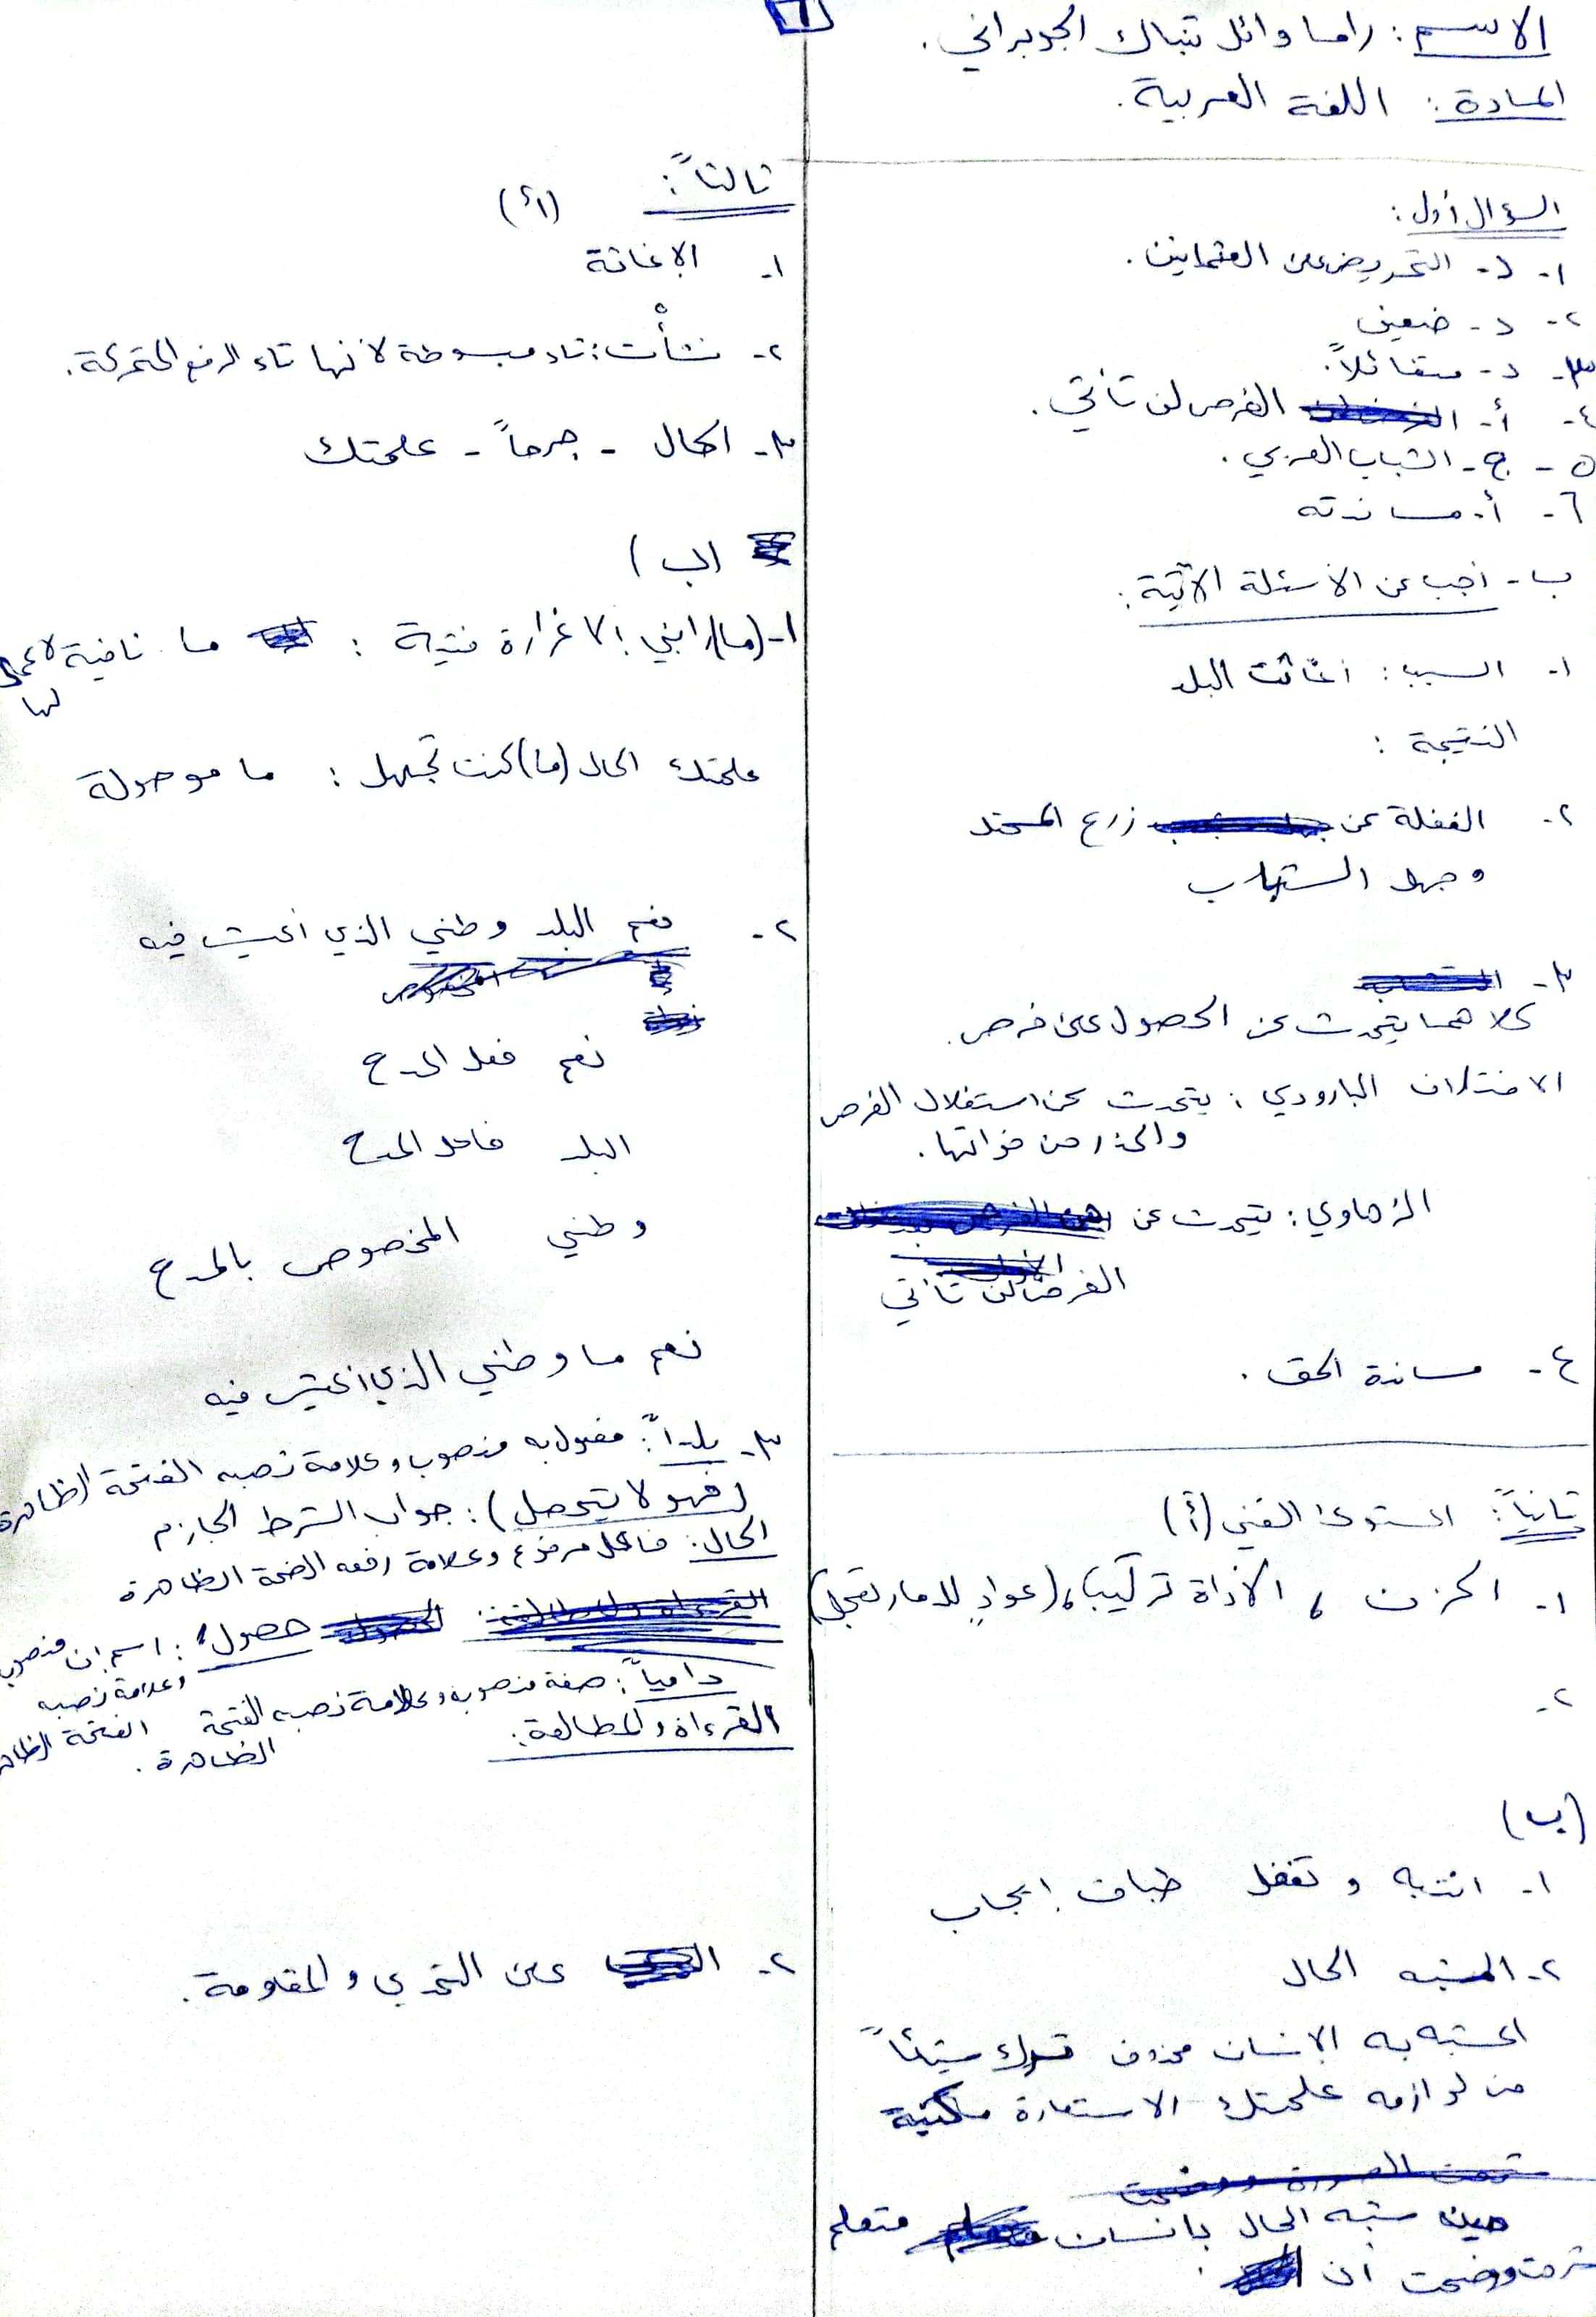 الاسم: راما وائل تنباك الجوبراني.
المادة: اللغة العربية.
السؤال أول:
١- د- التحريض على العثمانين.
٢- د- ضعيف
٣- د- متفائلاً.
٤- أ- الفرص لن تأتي.
٥- ج- الشباب العربي.
٦- أ- مساندته
ب- أجب عن الأسئلة الآتية:
١- السبب: أغاثت البلد
النتيجة:
٢- الغفلة عن زرع المحتد
وجهل الشباب
٣-
كلاهما يتحدث عن الحصول على فرص.
الاختلاف البارودي: يتحدث عن استغلال الفرص
والحذر من فواتها.
الزهاوي: يتحدث عن
الفرص لن تأتي
٤- مساندة الحق.
ثانياً: المستوى الفني (أ)
١- الحزن، الأداة تركيب، (عوادٍ للدمار تعجل)
٢-
(ب)
١- انتبه و تغفل طباق إيجاب
٢- المشبه الحال
المشبه به الإنسان محذوف ترك شيئاً
من لوازمه علمتك الاستعارة مكنية
حين شبه الحال بإنسان متعلم
شرحت ووضحت أن
٦
ثالثاً: (أ)
١- الإغاثة
٢- نشأْت: تاء مبسوطة لأنها تاء الرفع المتحركة.
٣- الحال - جرحاً - علمتك
(ب)
١- (ما) رابني إلا غرارة فتية: ما نافية لا عمل
لها
علمتك الحال (ما) كنت تجهل: ما موصولة
٢- نعم البلد وطني الذي أعيش فيه
نعم فعل المدح
البلد فاعل المدح
وطني المخصوص بالمدح
نعم ما وطني الذي أعيش فيه
٣- بلداً: مفعول به منصوب وعلامة نصبه الفتحة الظاهرة
(فهو لا يتحصل): جواب الشرط الجازم
الحال: فاعل مرفوع وعلامة رفعه الضمة الظاهرة
حصول: اسم إن منصوب
وعلامة نصبه
الفتحة الظاهرة
دامياً: صفة منصوبة وعلامة نصبه الفتحة
الظاهرة.
القراءة والمطالعة:
٢- على التحدي والمقاومة.